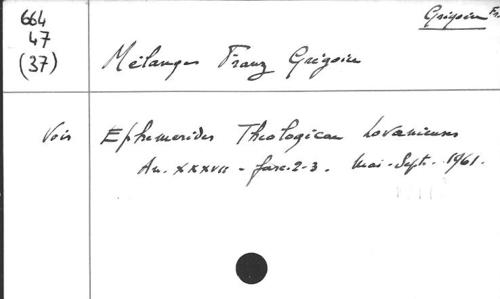 664
47
(37)
Grégoire Fr.
Mélanges Franz Grégoire
Voir Ephemerides Theologicae Lovanienses
An. XXXVII - fasc. 2-3. Mai-Sept. 1961.